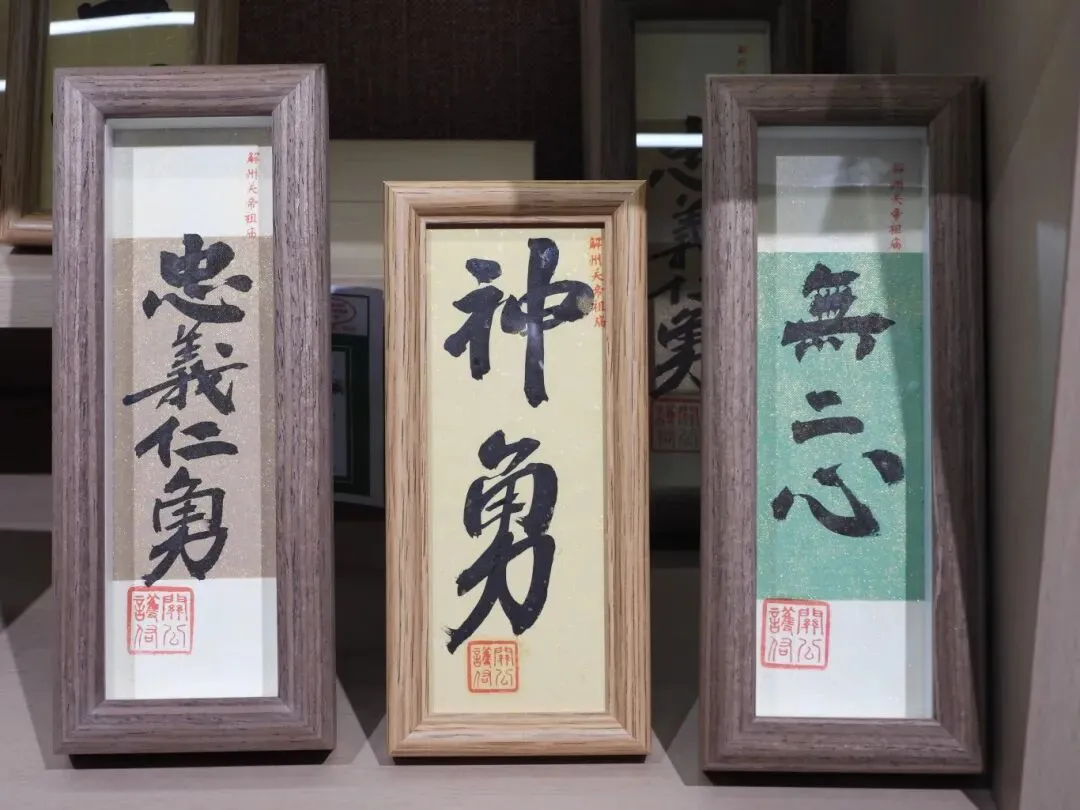 解州关帝祖庙
忠義仁勇
關公
護佑
解州关帝祖庙
神勇
關公
護佑
解州关帝祖庙
無二心
關公
護佑
忠義仁勇